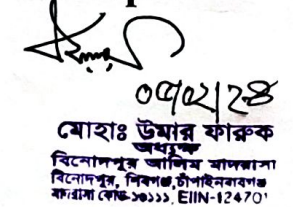 ০৫/০২/২৪
মোহাঃ উমার ফারুক
অধ্যক্ষ
বিনোদপুর আলিম মাদরাসা
বিনোদপুর, শিবগঞ্জ, চাঁপাইনবাবগঞ্জ
মাদ্রাসা কোড-১৮১১১, EIIN-124701